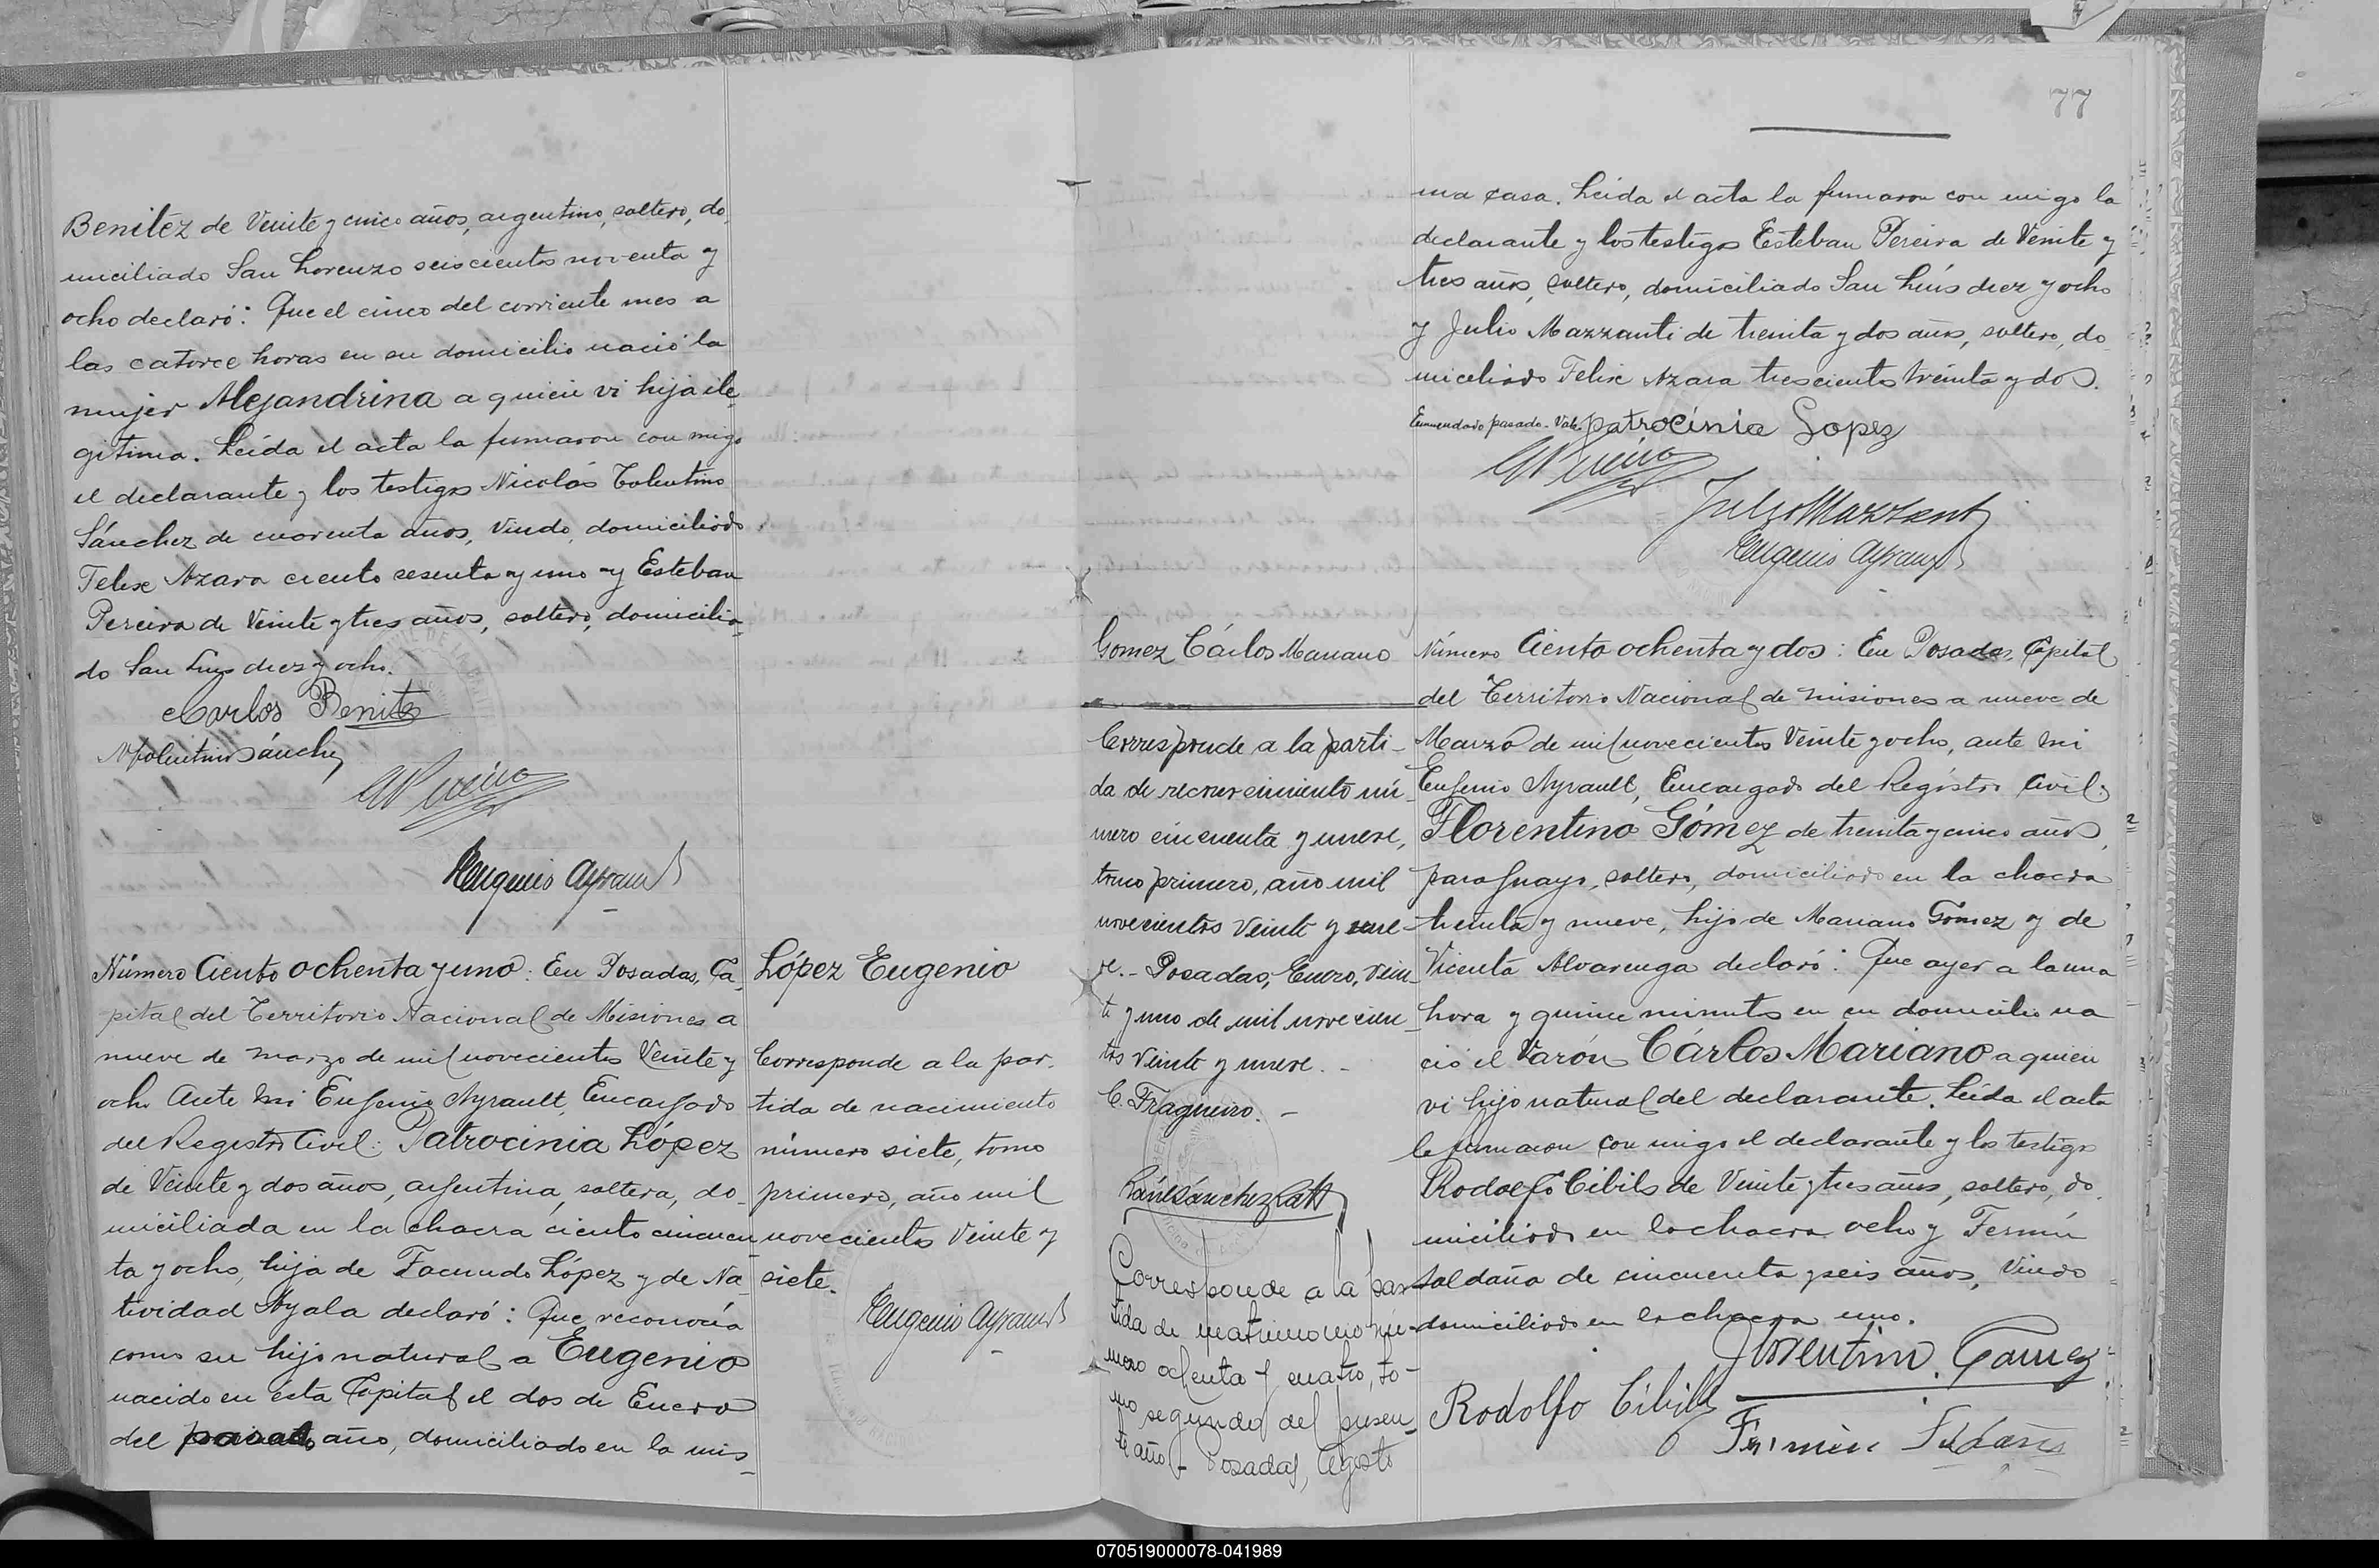 Benitez de Veinte y cinco años, argentino, soltero, do
miciliado San Lorenzo seiscientos noventa y
ocho declaró: Que el cinco del corriente mes a
las catorce horas en su domicilio nació la
mujer Alejandrina a quien vi hija ile-
gitima. Leída el acta la firmaron con migo
el declarante y los testigos Nicolás Tolentino
Sánchez de cuarenta años, Viudo, domiciliado
Felix Azara ciento sesenta y uno y Esteban
Pereira de Veinte y tres años, soltero, domicilia-
do San Luis diez y ocho.
Carlos Benitez
NTolentino Sánchez
Eugenio Ayrault
Número Ciento ochenta y uno: En Posadas, Ca-
pital del Territorio Nacional de Misiones a
nueve de marzo de mil novecientos Veinte y
ocho Ante mi Eugenio Ayrault, Encargado
del Registro Civil: Patrocinia López
de Veinte y dos años, argentina, soltera, do-
miciliada en la chacra ciento cincuen-
ta y ocho, hija de Facundo López y de Na-
tividad Ayala declaró: Que reconocía
como su hijo natural a Eugenio
nacido en esta Capital el dos de Enero
del pasado año, domiciliado en la mis-
López Eugenio
Corresponde a la par-
tida de nacimiento
número siete, tomo
primero, año mil
novecientos Veinte y
siete.
Eugenio Ayrault
77
ma casa. Leida el acta la firmaron con migo la
declarante y los testigos Esteban Pereira de Veinte y
tres años, soltero, domiciliado San Luís diez y ocho
y Julio Mazzanti de treinta y dos años, soltero, do
miciliado Felix Azara trescientos treinta y dos.
Enmendado pasado. Vale. Patrocinia Lopez
Julio Mazzanti
Eugenio Ayrault
Gomez Cárlos Mariano
Corresponde a la parti-
da de reconocimiento nú-
mero cincuenta y nueve,
tomo primero, año mil
novecientos Veinte y nue-
ve.- Posadas, Enero, Vein-
te y uno de mil novecien-
tos Veinte y nueve.-
C. Fragueiro.-
Corresponde a la par-
tida de matrimonio nú-
mero ochenta y cuatro, to-
mo segundo del presen-
te año - Posadas, Agosto
Número Ciento ochenta y dos: En Posadas, Capital
del Territorio Nacional de misiones a nueve de
Marzo de mil novecientos Veinte y ocho, ante mi
Eugenio Ayrault, Encargado del Registro Civil:
Florentino Gómez de treinta y cinco años,
paraguayo, soltero, domiciliado en la chacra
treinta y nueve, hijo de Mariano Gómez y de
Vicenta Alvarenga declaró: Que ayer a la una
hora y quince minutos en su domicilio na
ció el Varón Cárlos Mariano a quien
vi hijo natural del declarante. Leída el acta
la firmaron con migo el declarante y los testigos
Rodolfo Cibils de Veinte y tres años, soltero, do
miciliado en la chacra ocho y Fermín
Saldaña de cincuenta y seis años, Viudo
domiciliado en la chacra uno.
Florentino Gamez
Rodolfo Cibils
Fermin Saldaña
070519000078-041989